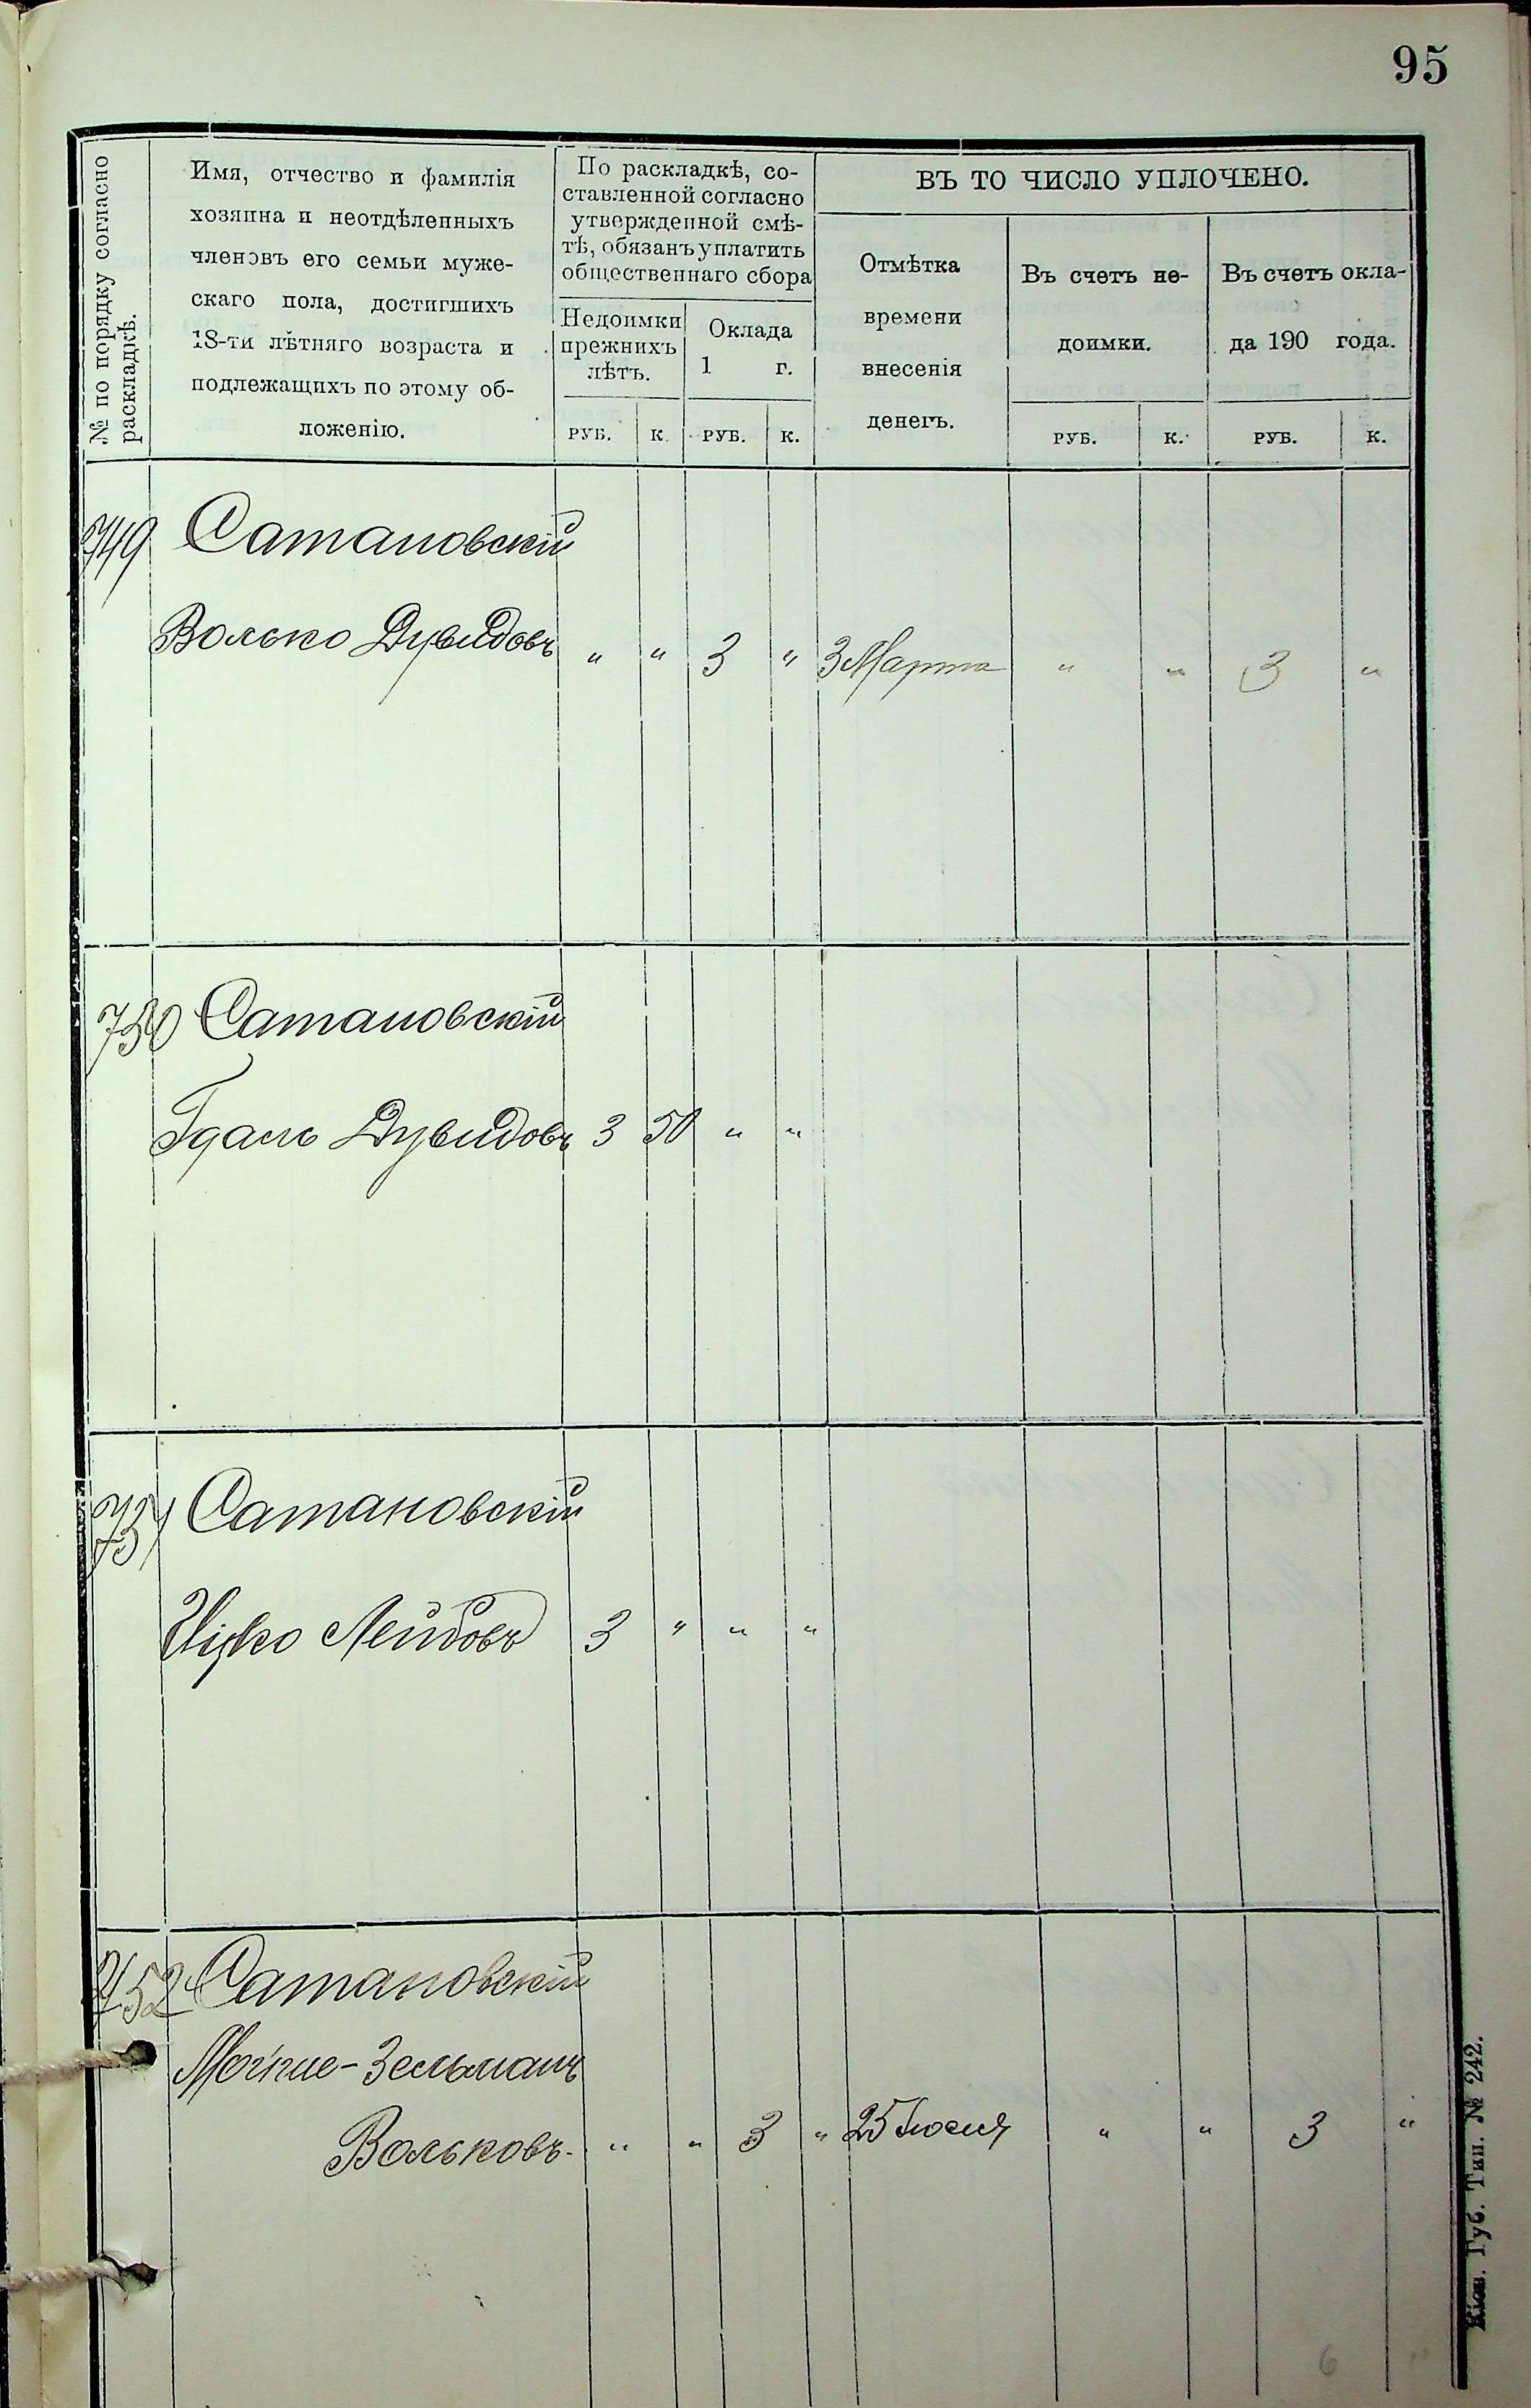 95
№ по порядку согласно
раскладкѣ.
Имя, отчество и фамилія
хозяина и неотдѣленныхъ
членовъ его семьи муже-
скаго пола, достигшихъ
18-ти лѣтняго возраста и
подлежащихъ по этому об-
ложенію.
По раскладкѣ, со-
ставленной согласно
утвержденной смѣ-
тѣ, обязанъ уплатить
общественнаго сбора
Недоимки
прежнихъ
лѣтъ.
Оклада
1 г.
ВЪ ТО ЧИСЛО УПЛОЧЕНО.
Отмѣтка
времени
внесенія
денегъ.
Въ счетъ не-
доимки.
Въ счетъ окла-
да 190 года.
РУБ. К. РУБ. К. РУБ. К. РУБ. К.
749 Сатановскій
Волько Дувидовъ „ „ 3 „ 3 Марта „ „ 3 „
750 Сатановскій
Гдаль Дувидовъ 3 50 „ „
751 Сатановскій
Ицко Лейбовъ 3 „ „ „
752 Сатановскій
Зельманъ
Вольковъ. „ „ 3 „ 25 Іюля „ „ 3 „
6 „
Кіев. Губ. Тип. № 242.